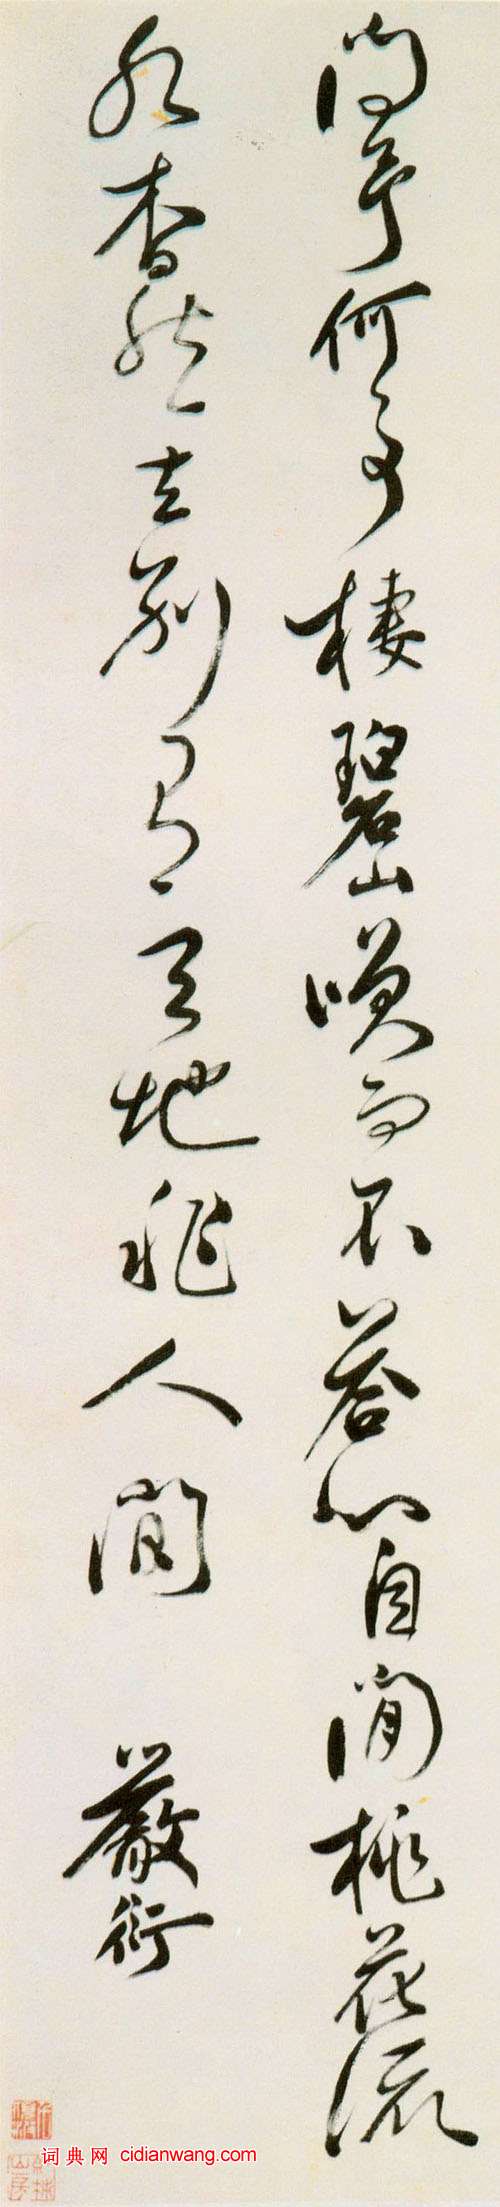 問予何事棲碧山咲而不荅心自閒桃花流
水杳然去別有天地非人間
嚴衍
词典网 cidianwang.com